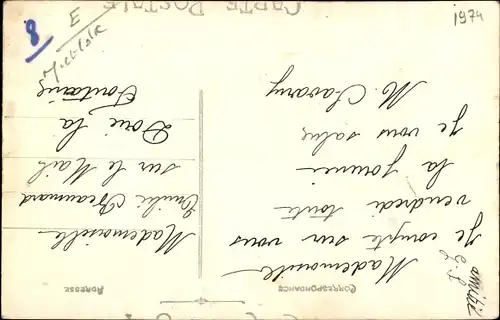 CARTE POSTALE
CORRESPONDANCE
ADRESSE
Mademoiselle
Je compte sur vous
vendredi toute
la journée
Je vous salue
M. Chavany
amitié
Mademoiselle
Emilie Beaumard
sur le Mail
Doué la
Fontaine
8
E
1974